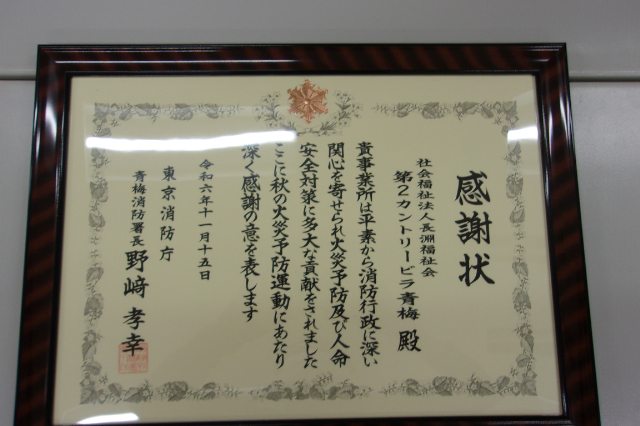 感謝状
社会福祉法人長淵福祉会
第2カントリービラ青梅 殿
貴事業所は平素から消防行政に深い
関心を寄せられ火災予防及び人命
安全対策に多大な貢献をされました
ここに秋の火災予防運動にあたり
深く感謝の意を表します
令和六年十一月十五日
東京消防庁
青梅消防署長 野﨑孝幸